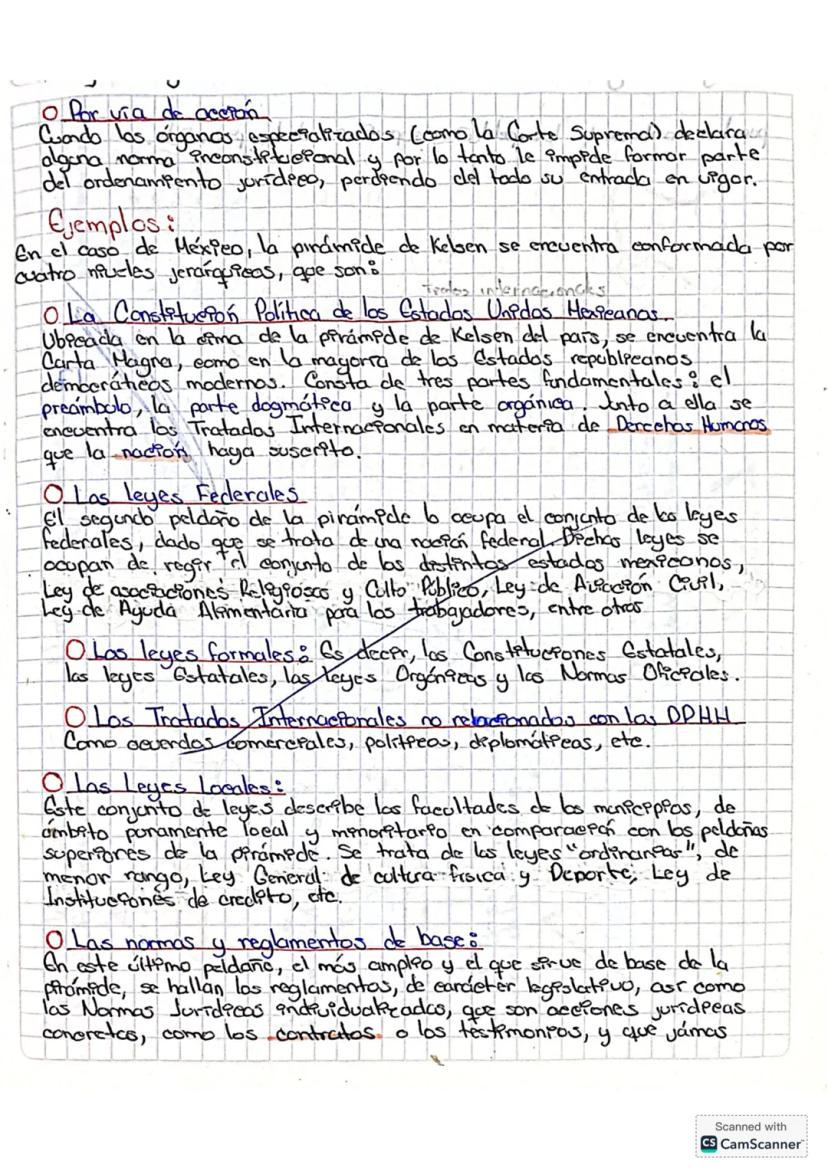 O Por vía de acción
Cuando los órganos especializados (como la Corte Suprema) declara
alguna norma inconstitucional y por lo tanto le impide formar parte
del ordenamiento jurídico, perdiendo del todo su entrada en vigor.
Ejemplos:
En el caso de México, la pirámide de Kelsen se encuentra conformada por
cuatro niveles jerárquicos, que son:
Tratos internacionales
O La Constitución Política de los Estados Unidos Mexicanos.
Ubicada en la cima de la pirámide de Kelsen del país, se encuentra la
Carta Magna, como en la mayoría de los Estados republicanos
democráticos modernos. Consta de tres partes fundamentales: el
preámbulo, la parte dogmática y la parte orgánica. Junto a ella se
encuentra los Tratados Internacionales en materia de Derechos Humanos
que la nación haya suscrito.
O Las leyes Federales
El segundo peldaño de la pirámide lo ocupa el conjunto de las leyes
federales, dado que se trata de una nación federal. Dichas leyes se
ocupan de regir el conjunto de los distintos estados mexicanos,
Ley de asociaciones Religiosas y Culto Público, Ley de Aviación Civil,
Ley de Ayuda Alimentaria para los trabajadores, entre otras
O Las leyes formales: Es decir, las Constituciones Estatales,
las leyes Estatales, las leyes Orgánicas y las Normas Oficiales.
O Los Tratados Internacionales no relacionados con las DDHH
Como acuerdos comerciales, políticos, diplomáticas, etc.
O Las Leyes Locales:
Este conjunto de leyes describe las facultades de los municipios, de
ámbito puramente local y minoritario en comparación con los peldaños
superiores de la pirámide. Se trata de las leyes "ordinarias", de
menor rango, Ley General de cultura física y Deporte, Ley de
Instituciones de credito, etc.
O Las normas y reglamentos de base:
En este último peldaño, el más amplio y el que sirve de base de la
pirámide, se hallan los reglamentos, de carácter legislativo, así como
las Normas Jurídicas individualizadas, que son acciones jurídicas
concretas, como los contratos o los testimonios, y que jámas
Scanned with
CS CamScanner